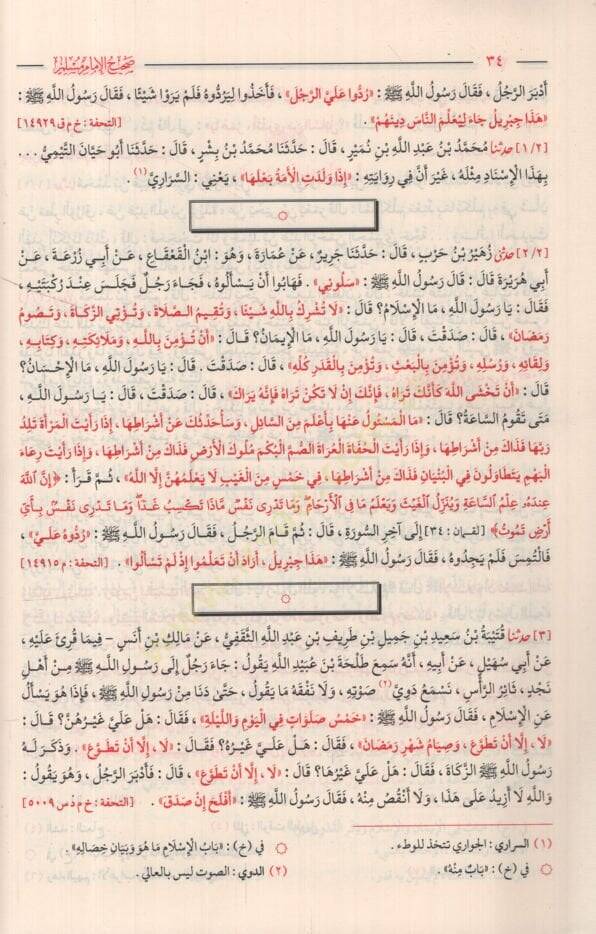 ٣٤ صحيح الإمام مسلم
أَدْبَرَ الرَّجُلُ، فَقَالَ رَسُولُ اللَّهِ ﷺ: «رُدُّوا عَلَيَّ الرَّجُلَ»، فَأَخَذُوا لِيَرُدُّوهُ فَلَمْ يَرَوْا شَيْئًا، فَقَالَ رَسُولُ اللَّهِ ﷺ:
«هَذَا جِبْرِيلُ جَاءَ لِيُعَلِّمَ النَّاسَ دِينَهُمْ». [التحفة: خ م ق ١٤٩٢٩]
[١/٢] حدثنا مُحَمَّدُ بْنُ عَبْدِ اللَّهِ بْنِ نُمَيْرٍ، قَالَ: حَدَّثَنَا مُحَمَّدُ بْنُ بِشْرٍ، قَالَ: حَدَّثَنَا أَبُو حَيَّانَ التَّيْمِيُّ...
بِهَذَا الْإِسْنَادِ مِثْلَهُ، غَيْرَ أَنَّ فِي رِوَايَتِهِ: «إِذَا وَلَدَتِ الْأَمَةُ بَعْلَهَا»، يَعْنِي: السَّرَارِيَّ(١).
[٢/٢] حدثني زُهَيْرُ بْنُ حَرْبٍ، قَالَ: حَدَّثَنَا جَرِيرٌ، عَنْ عُمَارَةَ، وَهُوَ: ابْنُ الْقَعْقَاعِ، عَنْ أَبِي زُرْعَةَ، عَنْ
أَبِي هُرَيْرَةَ قَالَ: قَالَ رَسُولُ اللَّهِ ﷺ: «سَلُونِي». فَهَابُوا أَنْ يَسْأَلُوهُ، فَجَاءَ رَجُلٌ فَجَلَسَ عِنْدَ رُكْبَتَيْهِ،
فَقَالَ: يَا رَسُولَ اللَّهِ، مَا الْإِسْلَامُ؟ قَالَ: «لَا تُشْرِكُ بِاللَّهِ شَيْئًا، وَتُقِيمُ الصَّلَاةَ، وَتُؤْتِي الزَّكَاةَ، وَتَصُومُ
رَمَضَانَ»، قَالَ: صَدَقْتَ، قَالَ: يَا رَسُولَ اللَّهِ، مَا الْإِيمَانُ؟ قَالَ: «أَنْ تُؤْمِنَ بِاللَّهِ، وَمَلَائِكَتِهِ، وَكِتَابِهِ،
وَلِقَائِهِ، وَرُسُلِهِ، وَتُؤْمِنَ بِالْبَعْثِ، وَتُؤْمِنَ بِالْقَدَرِ كُلِّهِ»، قَالَ: صَدَقْتَ. قَالَ: يَا رَسُولَ اللَّهِ، مَا الْإِحْسَانُ؟
قَالَ: «أَنْ تَخْشَى اللَّهَ كَأَنَّكَ تَرَاهُ، فَإِنَّكَ إِنْ لَا تَكُنْ تَرَاهُ فَإِنَّهُ يَرَاكَ»، قَالَ: صَدَقْتَ، قَالَ: يَا رَسُولَ اللَّهِ،
مَتَى تَقُومُ السَّاعَةُ؟ قَالَ: «مَا الْمَسْئُولُ عَنْهَا بِأَعْلَمَ مِنَ السَّائِلِ، وَسَأُحَدِّثُكَ عَنْ أَشْرَاطِهَا، إِذَا رَأَيْتَ الْمَرْأَةَ تَلِدُ
رَبَّهَا فَذَاكَ مِنْ أَشْرَاطِهَا، وَإِذَا رَأَيْتَ الْحُفَاةَ الْعُرَاةَ الصُّمَّ الْبُكْمَ مُلُوكَ الْأَرْضِ فَذَاكَ مِنْ أَشْرَاطِهَا، وَإِذَا رَأَيْتَ رِعَاءَ
الْبَهْمِ يَتَطَاوَلُونَ فِي الْبُنْيَانِ فَذَاكَ مِنْ أَشْرَاطِهَا، فِي خَمْسٍ مِنَ الْغَيْبِ لَا يَعْلَمُهُنَّ إِلَّا اللَّهُ»، ثُمَّ قَرَأَ: ﴿إِنَّ اللَّهَ
عِندَهُۥ عِلْمُ السَّاعَةِ وَيُنَزِّلُ الْغَيْثَ وَيَعْلَمُ مَا فِي الْأَرْحَامِ وَمَا تَدْرِي نَفْسٌ مَّاذَا تَكْسِبُ غَدًا وَمَا تَدْرِي نَفْسٌ بِأَيِّ
أَرْضٍ تَمُوتُ﴾ [لقمان: ٣٤] إِلَى آخِرِ السُّورَةِ، قَالَ: ثُمَّ قَامَ الرَّجُلُ، فَقَالَ رَسُولُ اللَّهِ ﷺ: «رُدُّوهُ عَلَيَّ»،
فَالْتُمِسَ فَلَمْ يَجِدُوهُ، فَقَالَ رَسُولُ اللَّهِ ﷺ: «هَذَا جِبْرِيلُ، أَرَادَ أَنْ تَعَلَّمُوا إِذْ لَمْ تَسْأَلُوا». [التحفة: م ١٤٩١٥]
[٣] حدثنا قُتَيْبَةُ بْنُ سَعِيدِ بْنِ جَمِيلِ بْنِ طَرِيفِ بْنِ عَبْدِ اللَّهِ الثَّقَفِيُّ، عَنْ مَالِكِ بْنِ أَنَسٍ - فِيمَا قُرِئَ عَلَيْهِ،
عَنْ أَبِي سُهَيْلٍ، عَنْ أَبِيهِ، أَنَّهُ سَمِعَ طَلْحَةَ بْنَ عُبَيْدِ اللَّهِ يَقُولُ: جَاءَ رَجُلٌ إِلَى رَسُولِ اللَّهِ ﷺ مِنْ أَهْلِ
نَجْدٍ، ثَائِرُ الرَّأْسِ، نَسْمَعُ دَوِيَّ(٢) صَوْتِهِ، وَلَا نَفْقَهُ مَا يَقُولُ، حَتَّى دَنَا مِنْ رَسُولِ اللَّهِ ﷺ، فَإِذَا هُوَ يَسْأَلُ
عَنِ الْإِسْلَامِ، فَقَالَ رَسُولُ اللَّهِ ﷺ: «خَمْسُ صَلَوَاتٍ فِي الْيَوْمِ وَاللَّيْلَةِ»، فَقَالَ: هَلْ عَلَيَّ غَيْرُهُنَّ؟ قَالَ:
«لَا، إِلَّا أَنْ تَطَوَّعَ، وَصِيَامُ شَهْرِ رَمَضَانَ»، فَقَالَ: هَلْ عَلَيَّ غَيْرُهُ؟ فَقَالَ: «لَا، إِلَّا أَنْ تَطَوَّعَ». وَذَكَرَ لَهُ
رَسُولُ اللَّهِ ﷺ الزَّكَاةَ، فَقَالَ: هَلْ عَلَيَّ غَيْرُهَا؟ قَالَ: «لَا، إِلَّا أَنْ تَطَوَّعَ»، قَالَ: فَأَدْبَرَ الرَّجُلُ، وَهُوَ يَقُولُ:
وَاللَّهِ لَا أَزِيدُ عَلَى هَذَا، وَلَا أَنْقُصُ مِنْهُ، فَقَالَ رَسُولُ اللَّهِ ﷺ: «أَفْلَحَ إِنْ صَدَقَ». [التحفة: خ م د س ٥٠٠٩]
(١) السراري: الجواري تتخذ للوطء. ۞ في (خ): «بَابُ الْإِسْلَامِ مَا هُوَ وَبَيَانِ خِصَالِهِ».
۞ في (خ): «بَابٌ مِنْهُ». (٢) الدوي: الصوت ليس بالعالي.